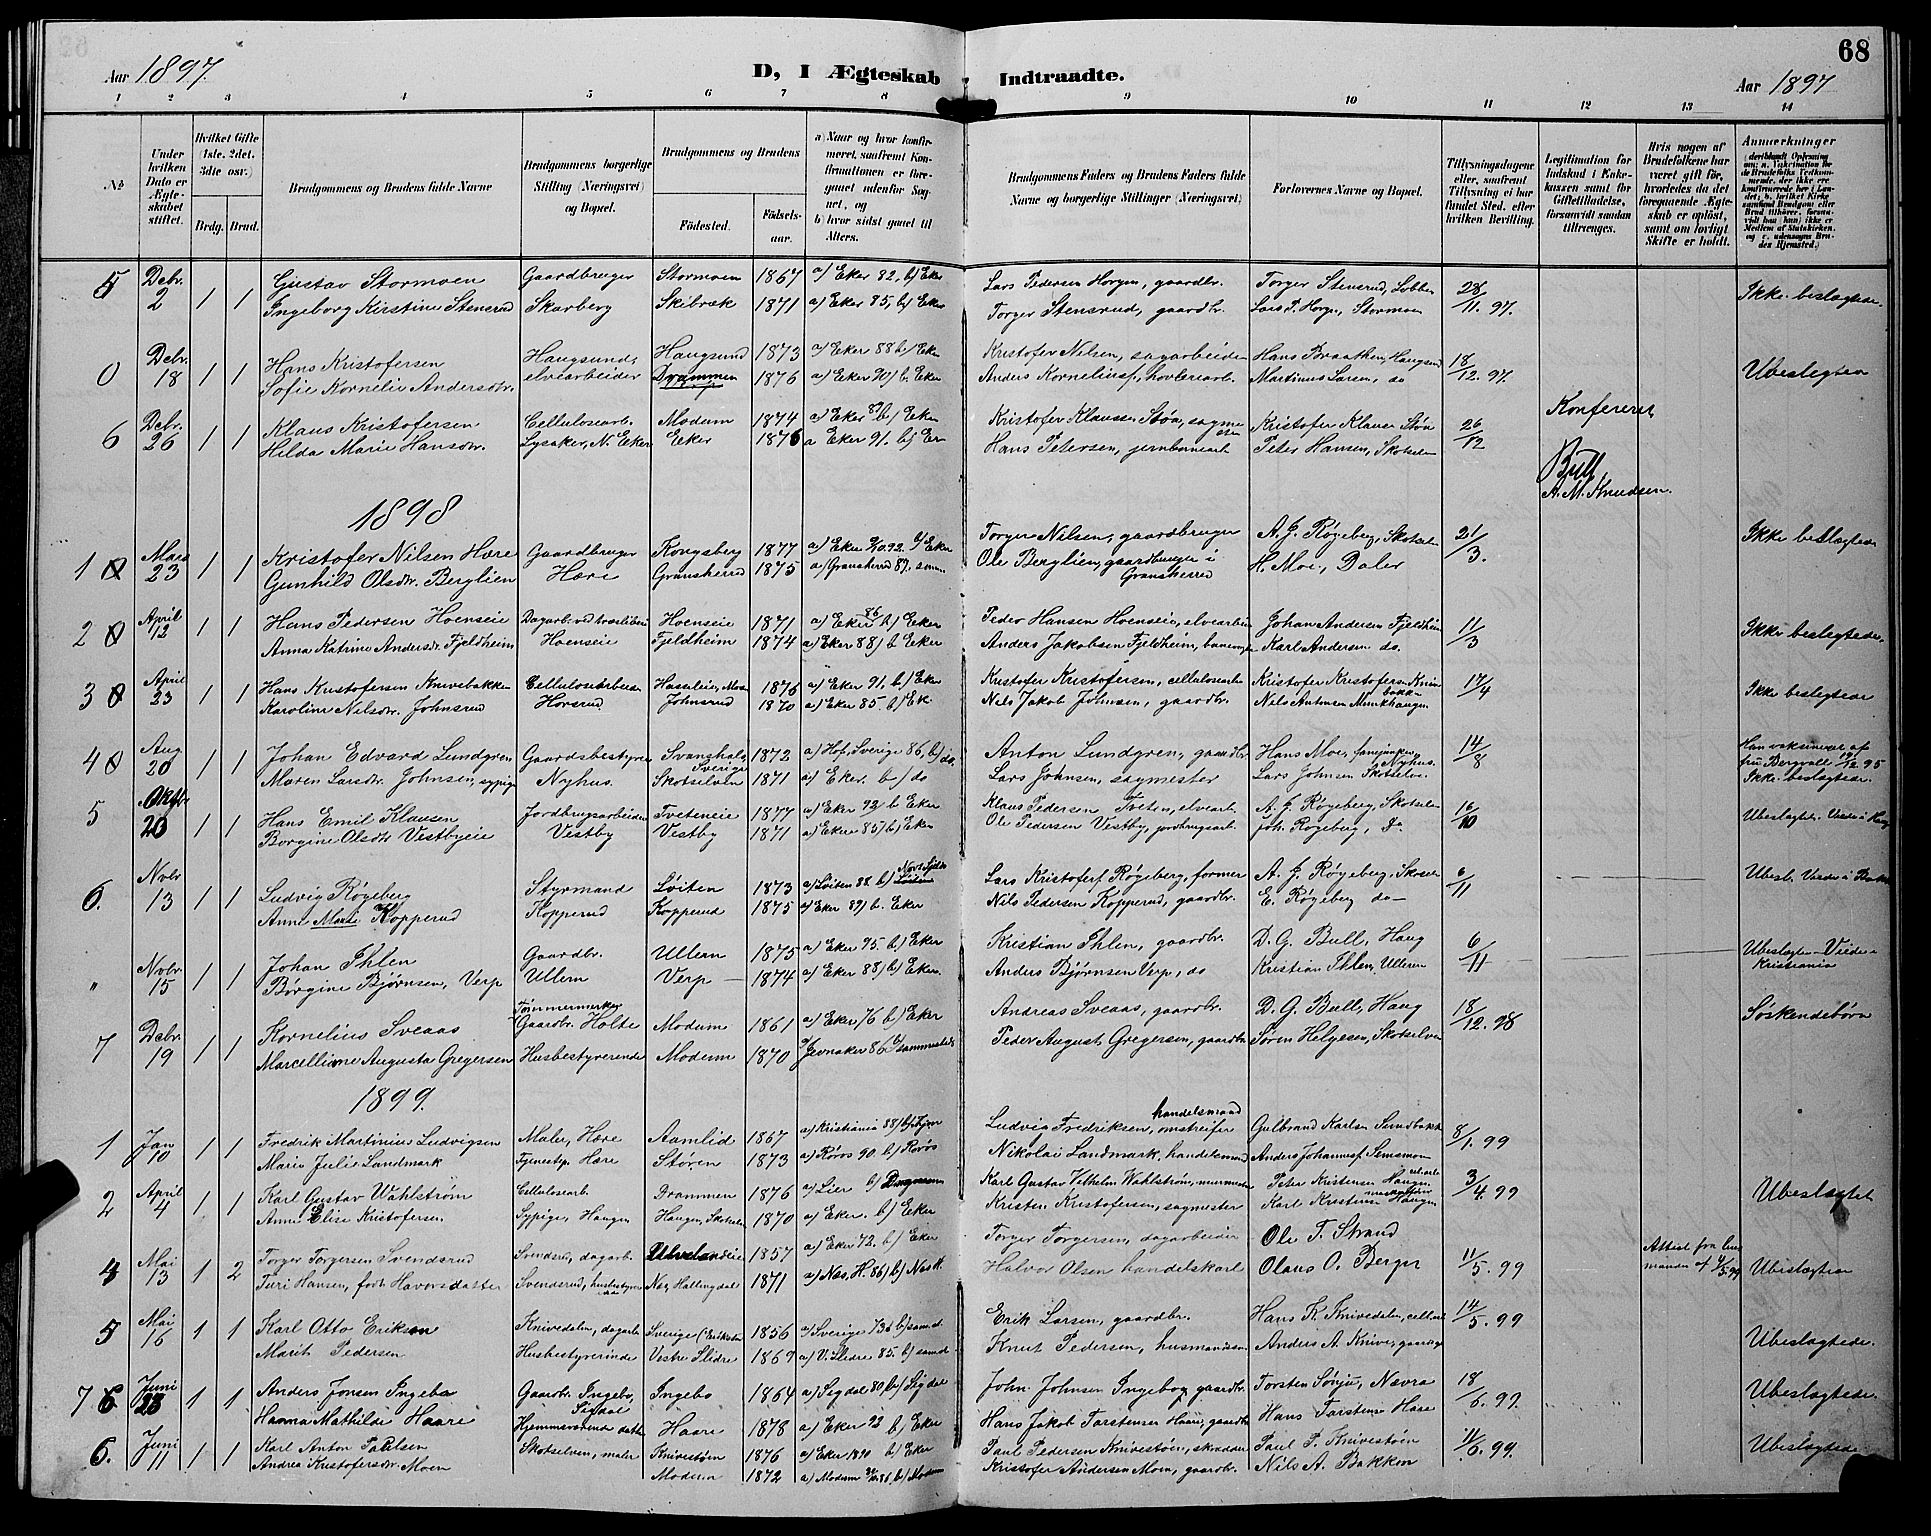 68
Aar 1897.
D, I Ægteskab Indtraadte.
Aar 1897
1 2 3 4 5 6 7 8 9 10 11 12 13 14
No
Under hvilken Dato er Ægteskabet stiftet.
Hvilket Gifte (1ste, 2det, 3die osv.)
Brdg. Brud.
Brudgommens og Brudens fulde Navne
Brudgommens borgerlige Stilling (Næringsvei) og Bopæl.
Brudgommens og Brudens
Fødested. Fødselsaar.
a) Naar og hvor konfirmeret, samfremt Konfirmationen er foregaaet udenfor Sognet, og
b) hvor sidst gaaet til Alters.
Brudgommens Faders og Brudens Faders fulde Navne og borgerlige Stillinger (Næringsvei)
Forlovernes Navne og Bopæl.
Tillysningsdagene eller, saafremt Tillysning ei har fundet Sted, efter hvilken Bevilling.
Legitimation for Indskud i Enkekassen samt for Giftetilladelse, forsaavidt saadan tiltrænges.
Hvis nogen af Brudefolkene har været gift før, hvorledes da det foregaaende Ægteskab er opløst, samt om lovligt Skifte er holdt.
Anmærkninger
5 Debr. 2 1 1 Gustav Stormoen Gaardbruger Stormoen 1867 a) Eker 82, b) Eker Lars Pedersen Horgen, gaardbr. Torger Stensrud, Lobben 28/11. 97. Ikke beslegtede.
Ingeborg Kirstine Stensrud Skarberg Skibræk 1871 a) Eker 85, b) Eker Torger Stensrud, gaardbr. Lars P. Horge, Stormoen
0 Debr. 18 1 1 Hans Kristofersen Haugsund, Haugsund 1873 a) Eker 88 b) Eker Kristofer Nilsen, sagarbeider Hans Braathen, Haugsund 18/12. 97. Ubeslegtede
Sofie Kornelie Andersdtr. elvearbeider Drammen 1876 a) Eker 90) b. Eker Anders Korneliusf., hovlerearb. Martinus Larsen, do
6 Debr. 26 1 1 Klaus Kristofersen Cellulosearb. Modum 1874 a) Eker 89 b) Eker Kristofer Klausen Støn, sagmester Kristofer Klausen Støn 26/12 Konfereret
Hilda Marie Hansdtr. Lysaker, N. Eker Eker 1876 a Eker 91. b) Er Hans Petersen, jernbanearb Peter Hansen, Skotselv
Bull
A. M. Knudsen.
1898
1 0 Mars 23 1 1 Kristofer Nilsen Hære Gaardbruger Kongsberg 1877 a) Eker 2/10.92. b) Eker Torger Nilsen, gaardbruger A. J. Røgeberg, Skotselv 21/3. Ikke beslegtede
Gunhild Olsdtr. Berglien Hære Gransherred 1875 a) Gransherred 89, smm. Ole Berglien, gaardbruger i Gransherred H. Moe, Daler
2 0 April 12 1 1 Hans Pedersen Hoenseie Dagarb. ved træsliberi Hoenseie 1871 a) Eker 86 b) Eker Peder Hansen Hoenseie, elvearbeider Johan Andersen Fjeldheim 11/3 Ikke beslegtede.
Anna Katrine Andersdr. Fjeldheim Hoenseie Fjeldheim 1874 a) Eker 88) b Eker Anders Jakobsen Fjeldheim, Karl Andersen do.
3 0 April 23 1 1 Hans Kristofersen Knivebakken Cellulosearbeider Hasseleie, Mod 1876 a) Eker 91, b) Eker Kristofer Kristofersen, cellulosearb Kristofer Kristofersen Knivebakken 17/4 Ikke beslegtede
Karoline Nilsdtr. Johnsrud Horsrud Johnsrud 1870 a) Eker 85. b) Ek. Nils Jakob Johnsen, gaardbr. Nils Antonsen Munkhaugen
4 0 Aug 20 1 1 Johan Edvard Lundgren Gaardsbestyrer Svanshals, Sverige 1872 a) Hof, Sverige 86, b) do. Anton Lundgren, gaardbr Hans Moe, fanejunker, Nyhus. 14/8 Han vaksineret af fru Bergvall 19/12 95 Ikke beslegtede.
Maren Larsdr. Johnsen, sypige Nyhus. Skotselven 1871 a) Eker. b) do Lars Johnsen, sagmester Lars Johnsen Skotselv.
5 Oktbr 20 1 1 Hans Emil Klausen Jordbrugsarbeider Tveteneie 1877 a) Eker 92 b Eker Klaus Pedersen Tveten, elvearb A. J. Røgeberg, Skotselv 16/10 Ubeslegtet. Viede i Haug
Borgine Olsdtr Vestbyeie Vestby Vestby 1871 a) Eker 85) b) Eker Ole Pedersen Vestby, jordbrugsarb. Joh. Røgeberg, do
6. Novbr 13 1 1 Ludvig Røgeberg Styrmand Løiten 1873 a) Løiten 88. b) Løiten Lars Kristoferf Røgeberg, former A. J. Røgeberg, Skotselv 6/11 Ubesl. Viede i
Anne Marie Kopperud Kopperud Kopperud 1875 a) Eker 89) b. Eker Nils Pedersen Kopperud, gaardbr. E. Røgeberg do
" Novbr. 15 1 1 Johan Ihlen Gaardbr. Ullern 1875 a) Eker 95. b) Eker Kristian Ihlen, gaardbr. D. G. Bull, Haug 6/11 Ubeslegtede – Viede i Kristiania
Børgine Bjørnsen, Verp Ullern Verp 1874 a) Eker 88) b) Eker. Anders Bjørnsen Verp, do Kristian Ihlen, Ullern
7 Debr. 19 1 1 Kornelius Sveaas Tømmermerker Gaardbr. Holte Modum 1861 a) Eker 76 b) Eker Andreas Sveaas, gaardbr. D. G. Bull, Haug 18/12. 98 Søskendebørn
Marcelline Augusta Gregersen Husbestyrerinde Modum 1870 a) Jevnaker 86 b) sammesteds Peder August Gregersen, gaardbr Søren Helgesen, Skotselven
1899.
1 Jan 10 1 1 Fredrik Martinius Ludvigsen Maler, Hære Aamlid 1867 a) Kristiania 88) b) Ludvig Fredriksen, omstreifer handelsmand Gulbrand Karlsen Sundbakk 8/1. 99
Marie Julie Landmark Tjenestp. Hære Støren 1873 a) Røros 90. b) Røros Nikolai Landmark, handelsmand Anders Johannesf. Semsmoen
2 April 4 1 1 Karl Gustav Wahlstrøm Cellulosearb. Drammen 1876 a) Lier b) Drammen Karl Gustav Vilhelm Wahlstrøm, murmester Peter Kristensen Haugen 3/4. 99 Ubeslegtet
Anne Elise Kristofersen. Sypige, Haugen Haugen, Skotselv 1870 a) Eker. b) Eker Kristen Kristofersen, sagmester Karl Kristensen Haugen
4 Mai 13 1 2 Torger Torgersen Svendsrud Svendsr., dagarb. Ulvelandeie 1857 a) Eker 72. b) Eker Torger Torgersen, dagarbeider Ole T. Strand 11/5. 99 Attest fra lensmanden af 4/5 99 Ubeslegtede
Turi Hansen, født Havorsdatter Svendsrud, husbestyrerinde Nes, Hallingdal 1871 a) Næs, H. 86) b) Næs H. Halvor Olsen handelskarl Olaus O. Berger
5 Mai 16 1 1 Karl Otto Eriksen Knivedalen, dagarb Sverige 1856 a) Sverige 73 b) sam. st. Erik Larsen, gaardbr. Hans K. Knivedalen, cellul 14/5. 99 Ubeslegtede.
Marit Pedersen Husbestyrerinde Vestre Slidre 1867 a) V. Slidre 85. b) samst. Knut Pedersen, husmandssøn Anders A. Knive, gaardbr
7 6 Juni 23 1 1 Anders Jonsen Ingebo Gaardbr. Ingebo, Sigdal Ingebo 1864 a) Sigdal 80, b) Sigdal John Johnsen Ingebo, gaardbr. Torsten Sønju, Nævra 18/6. 99. Ubeslegtede.
Hanna Mathilde Haare Hjemmeværende datter Haare 1878 a) Eker 92 b) Eker Hans Jakob Torstensen Haare, gaardbr Hans Torstensen Hare
6. Juni 11 1 1 Karl Anton Paulsen Skotselven, maler Knivestøen 1876 a) Eker 1890 b) Eker Paul Pedersen Knivestøen, skrædder Paul P. Knivestøen 11/6. 99. Ubeslegtede
Andrea Kristofersdr. Moen Modum 1872 a) Modum 86 b) Modum Kristofer Andersen Moen, gaardbr. Nils A. Bakken